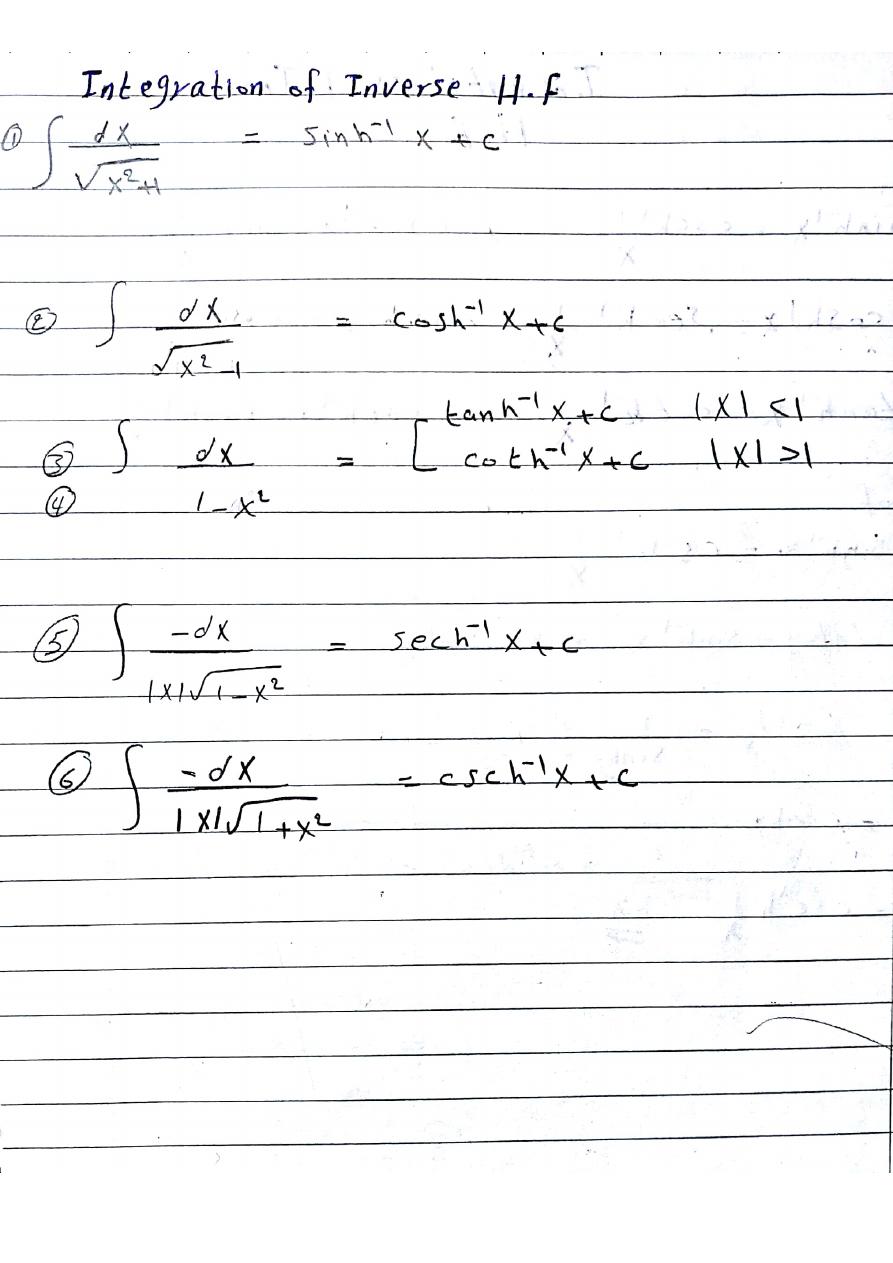 Integration of Inverse H.F
① ∫ dx / √(x²+1) = sinh⁻¹ x + c
② ∫ dx / √(x²-1) = cosh⁻¹ x + c
③ ④ ∫ dx / (1-x²) = [ tanh⁻¹ x + c |x| < 1
coth⁻¹ x + c |x| > 1
⑤ ∫ -dx / |x|√(1-x²) = sech⁻¹ x + c
⑥ ∫ -dx / |x|√(1+x²) = csch⁻¹ x + c